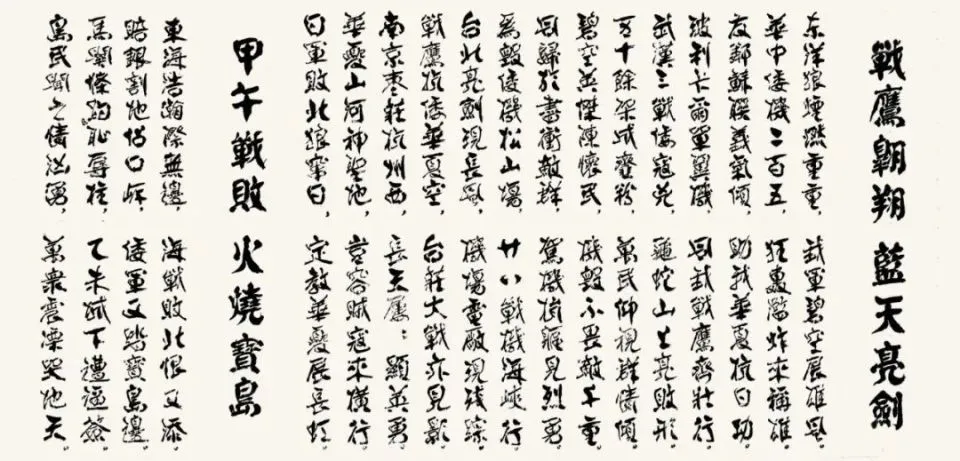 戰鷹翱翔 藍天亮劍
东洋狼煙燃重重，我軍碧空展雄風。
華中倭機二百五，狂轟濫炸來稱雄。
友鄰蘇聯義氣傾，助我華夏抗日功。
波利卡爾軍翼機，同我戰鷹齊壯行。
武漢三戰倭寇光，龜蛇山上亮敗形。
五十餘架成齏粉，萬民仰視群情傾。
碧空英傑陳懷民，機毀不畏敵千重。
同歸於盡衝敵群，駕機撞見烈勇。
為毀倭機松山場，廿八戰機海峽行。
台北亮劍現長風，機場電廠現殘踪。
戰鷹抗倭華夏空，台莊大戰亦見影。
南京枣莊杭州西，長天鷹：顯英勇。
華夏山河神聖地，豈容賊寇來橫行。
日軍敗北狼窜日，定教華夏展長虹。
甲午戰敗 火燒寶島
東海浩瀚際無邊，海戰敗北恨又添。
賠銀割地口岸，倭軍又踏寶島邊。
馬關條約恥辱柱，乙未城下遭逼簽。
島民聞之情洶湧，萬衆震慄哭地天。